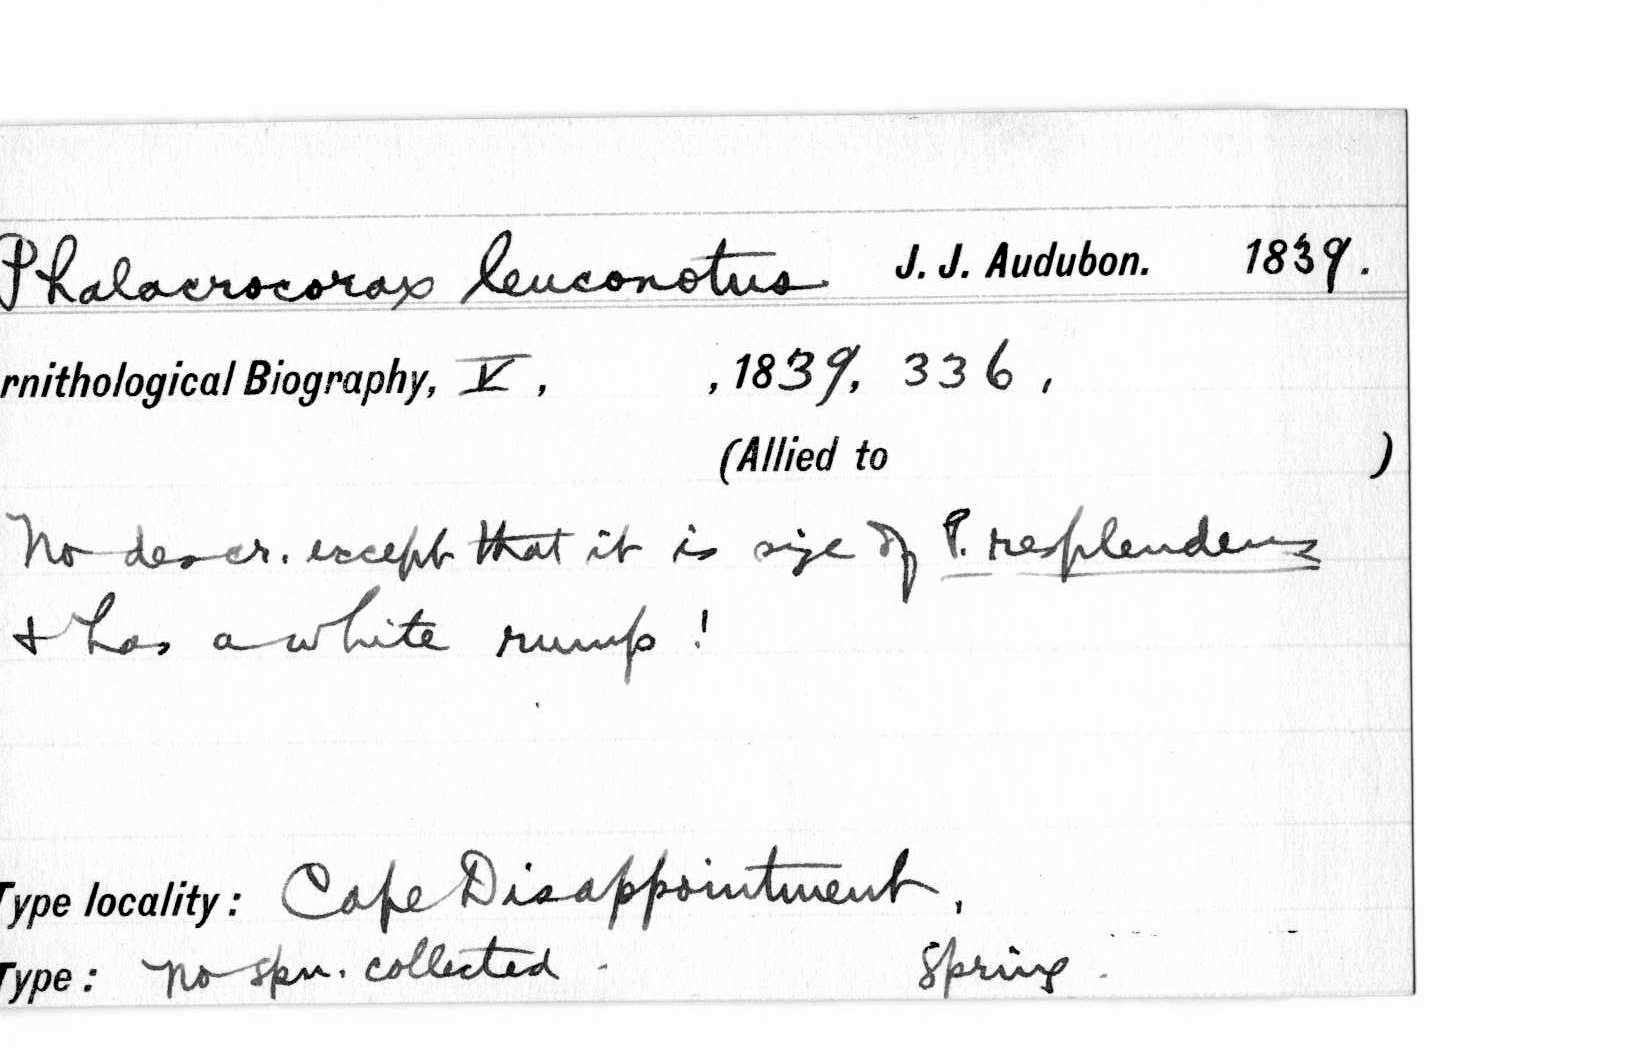 Phalacrocorax leuconotus J. J. Audubon. 1839.
rnithological Biography, V, , 1839, 336,
(Allied to )
No descr. except that it is size of P. resplendens
& has a white rump!
Type locality: Cape Disappointment,
Type: no spn. collected - Spring.